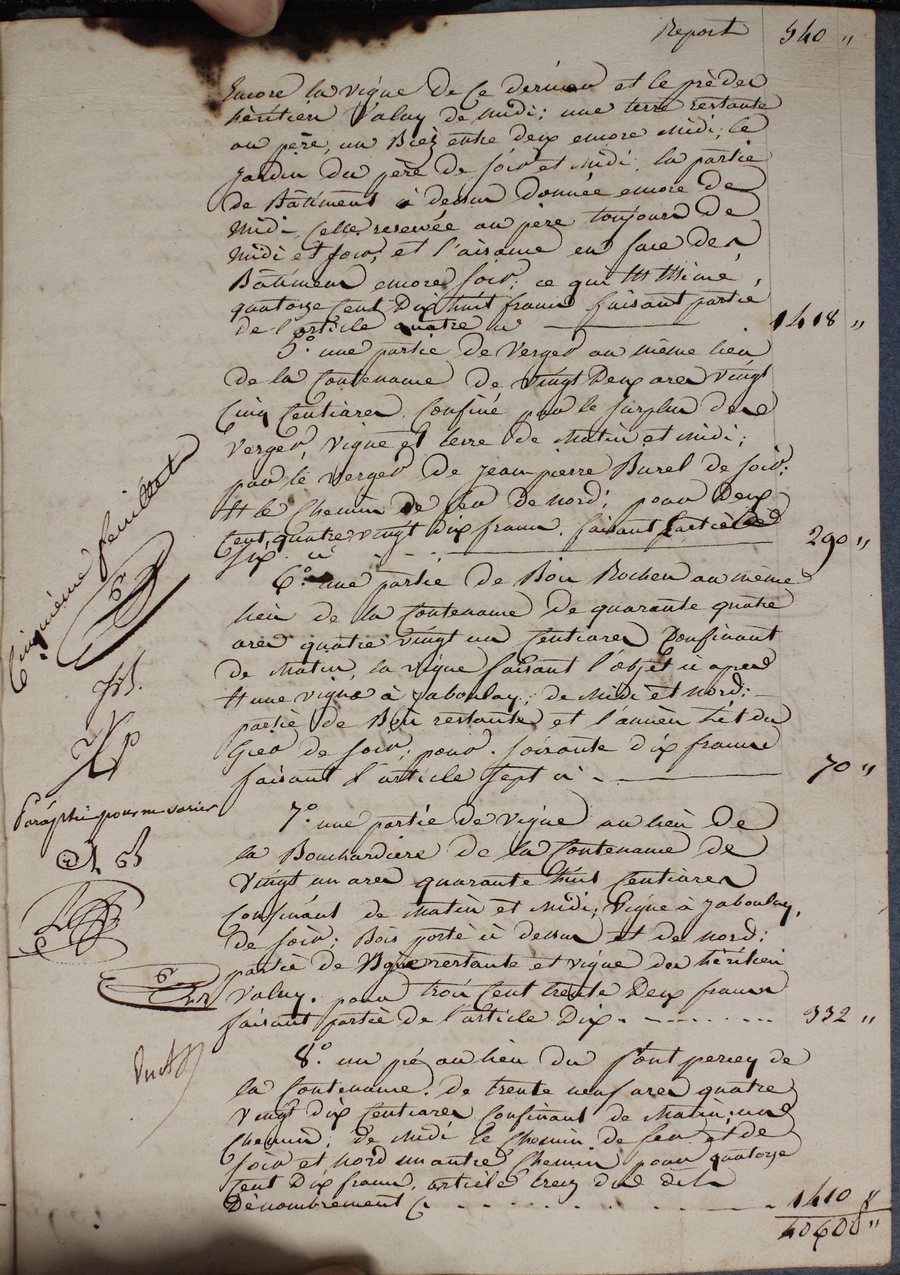 Report 540 "
Encore la vigne de ce dernier et le pré des
héritiers Valuy de midi; une terre restante
au père, un Biez entre deux encore midi; le
Jardin du père de soir et midi; la partie
de Bâtiment à dessus donnée encore de
midi, celle reservée au père toujours de
midi et soir, et l'aisance en face des
Bâtimens encore soir; ce qui estimé,
quatorze cent dix huit francs faisant partie
de l'article quatre ci 1418 "
5° une partie de verger au même lieu
de la contenance de vingt deux ares vingt
cinq centiares, confiné par le surplus de
verger, vigne et terre de matin et midi;
par le verger de jean pierre Burel de soir;
et le chemin de feu de nord; pour deux
cent quatre vingt dix francs, faisant l'article
six ci 290 "
6° une partie de Bois Rochers au même
lieu de la contenance de quarante quatre
ares quatre vingt un centiares confinant
de matin, la vigne faisant l'objet ci après
et une vigne à Jaboulay; de midi et nord;
partie de Bois restante et l'ancien lit du
Gier de soir; pour soixante dix francs
faisant l'article sept ci 70 "
7° une partie de vigne au lieu de
la Bouchardiere de la contenance de
vingt un ares quarante huit centiares
confinant de matin et midi; vigne à Jaboulay,
de soir; Bois porté ci dessus et de nord;
partie de vigne restante et vigne des héritiers
Valuy, pour trois cent trente deux francs
faisant partie de l'article dix 332 "
8° un pré au lieu du font percey de
la contenance de trente neuf ares quatre
vingt dix centiares confinant de matin; un
chemin; de midi le chemin de feu et de
soir et nord un autre chemin pour quatorze
cent dix francs, article treize du dit
Dénombrement ci 1410 "
4060 "
Cinquième feuillet
Paraphé pour ne varier